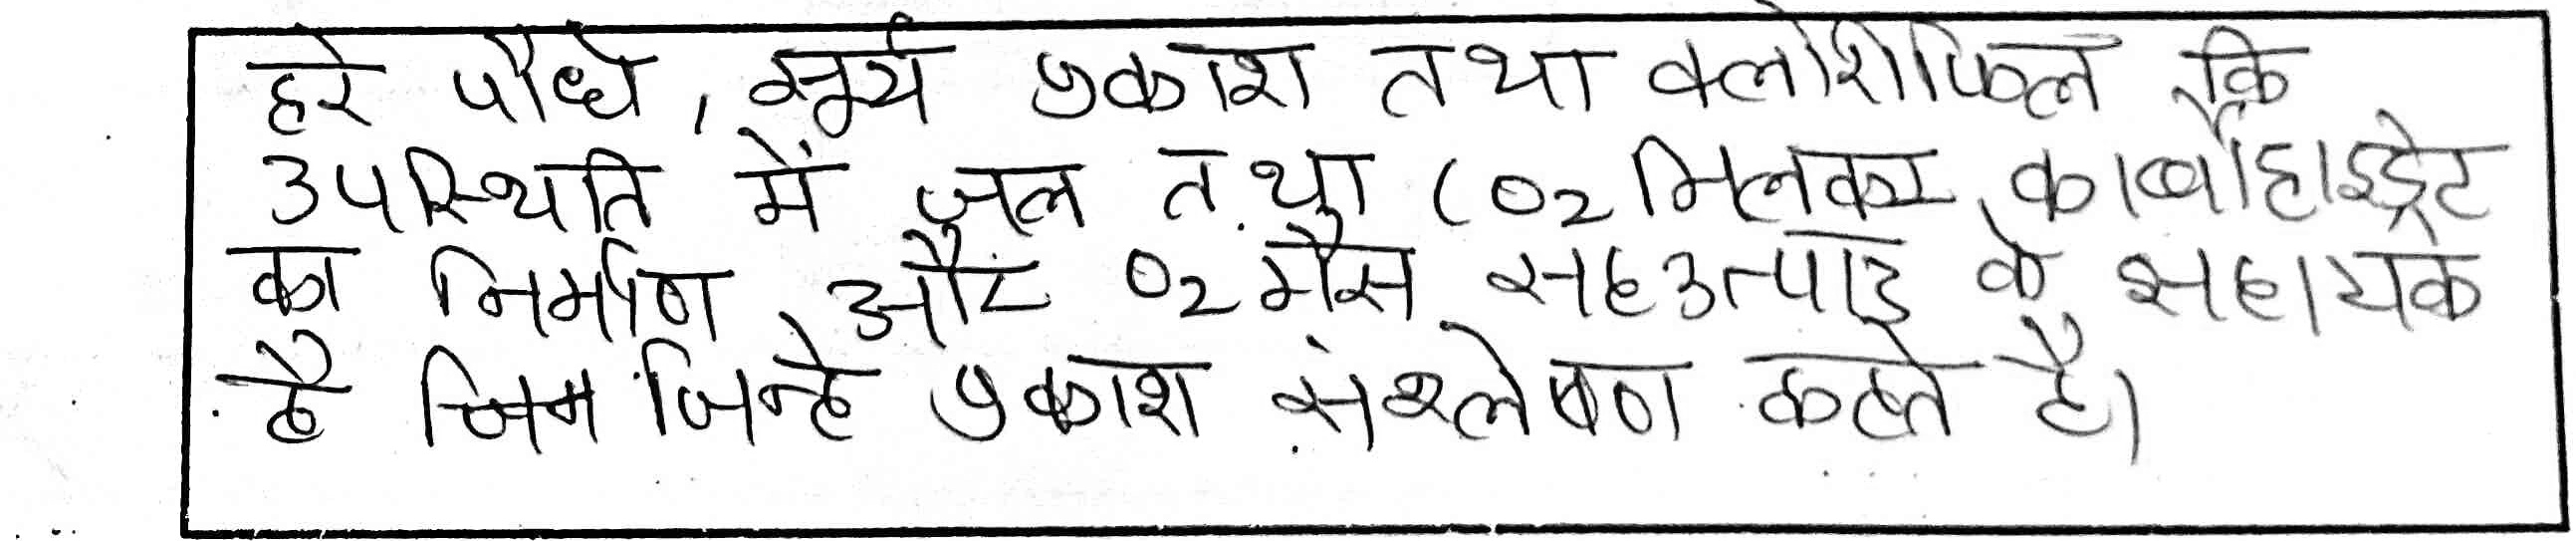 हरे पौधे, सूर्य प्रकाश तथा क्लोरोफिल कि
उपस्थिति में जल तथा CO2 मिलकर कार्बोहाइड्रेट
का निर्माण और O2 गैस सहउत्पाद के सहायक
है जिन जिन्हे प्रकाश संश्लेषण कहते है।